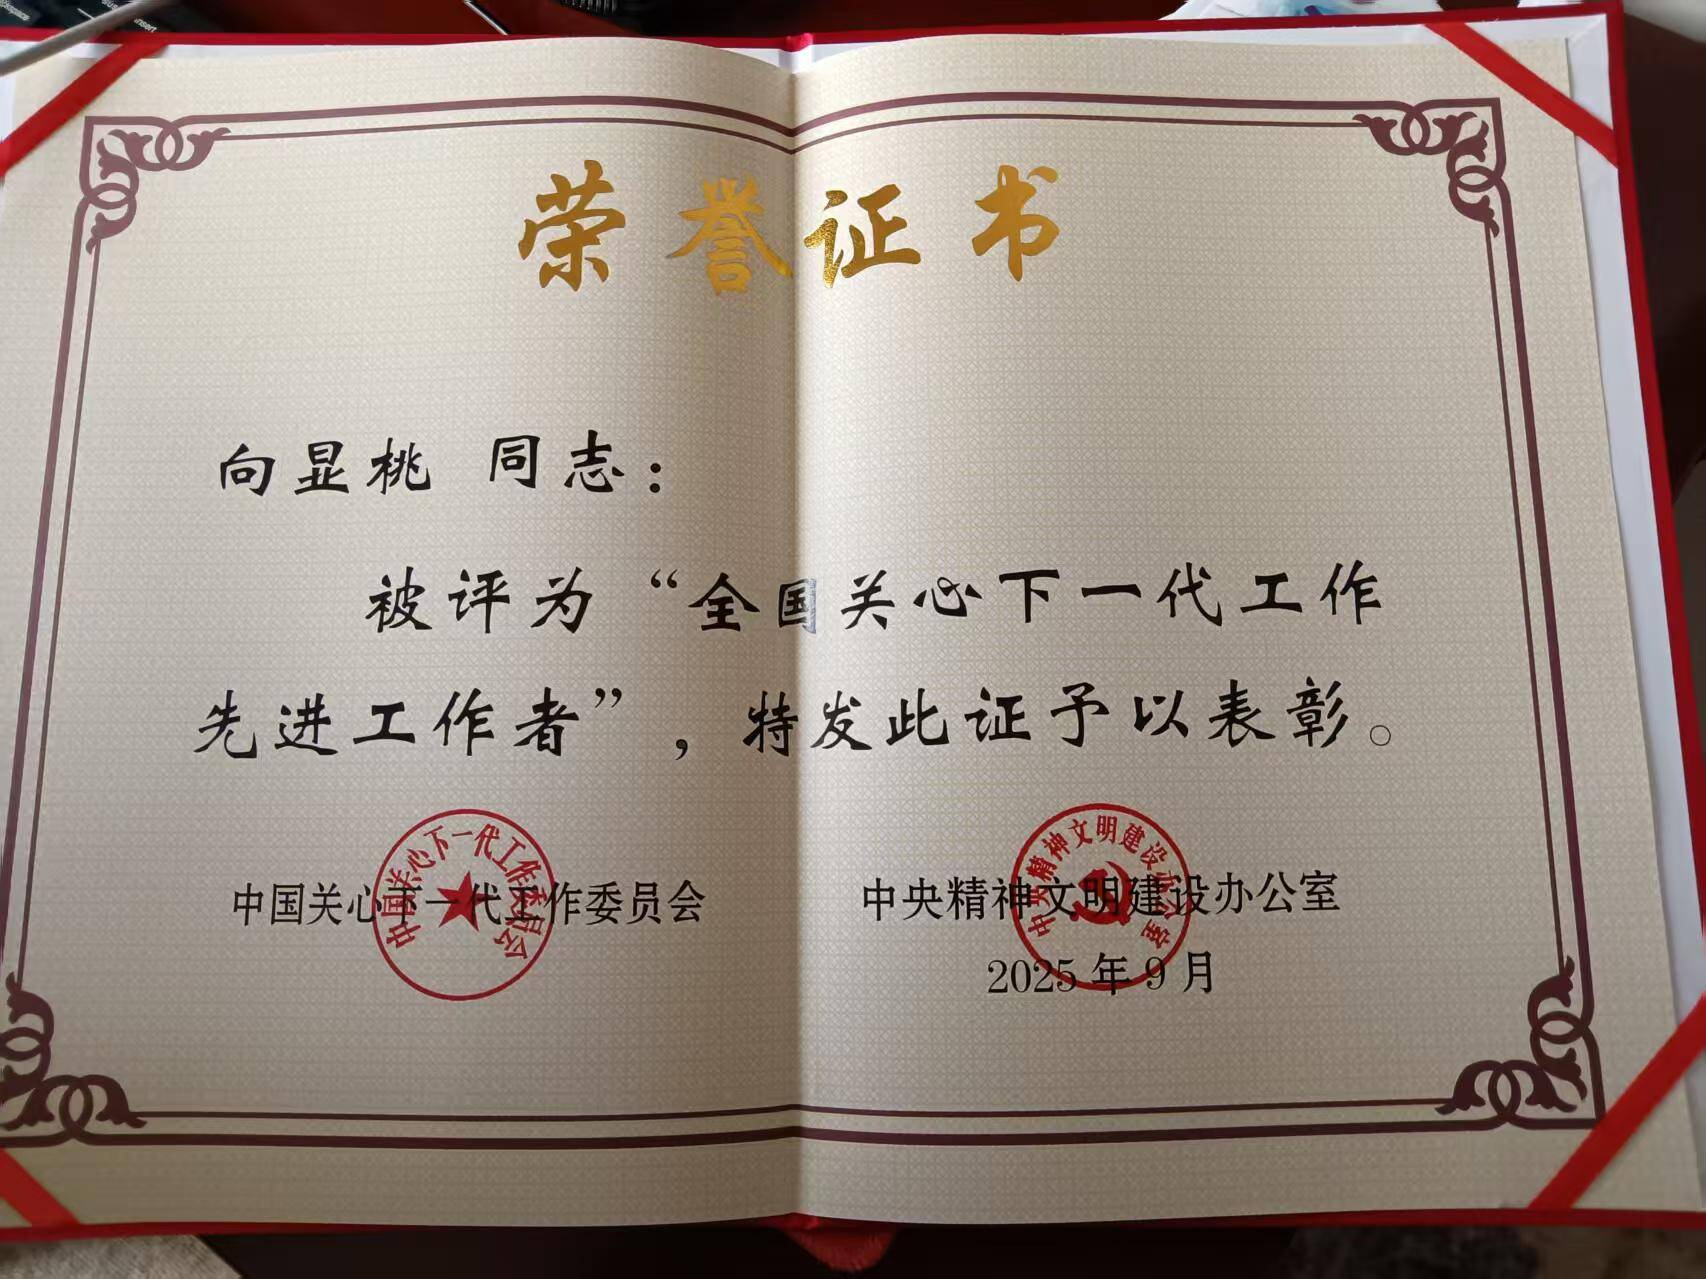 荣誉证书
向显桃 同志：
被评为“全国关心下一代工作
先进工作者”，特发此证予以表彰。
中国关心下一代工作委员会
中国关心下一代工作委员会
中央精神文明建设办公室
中央精神文明建设办公室
2025年9月
insert